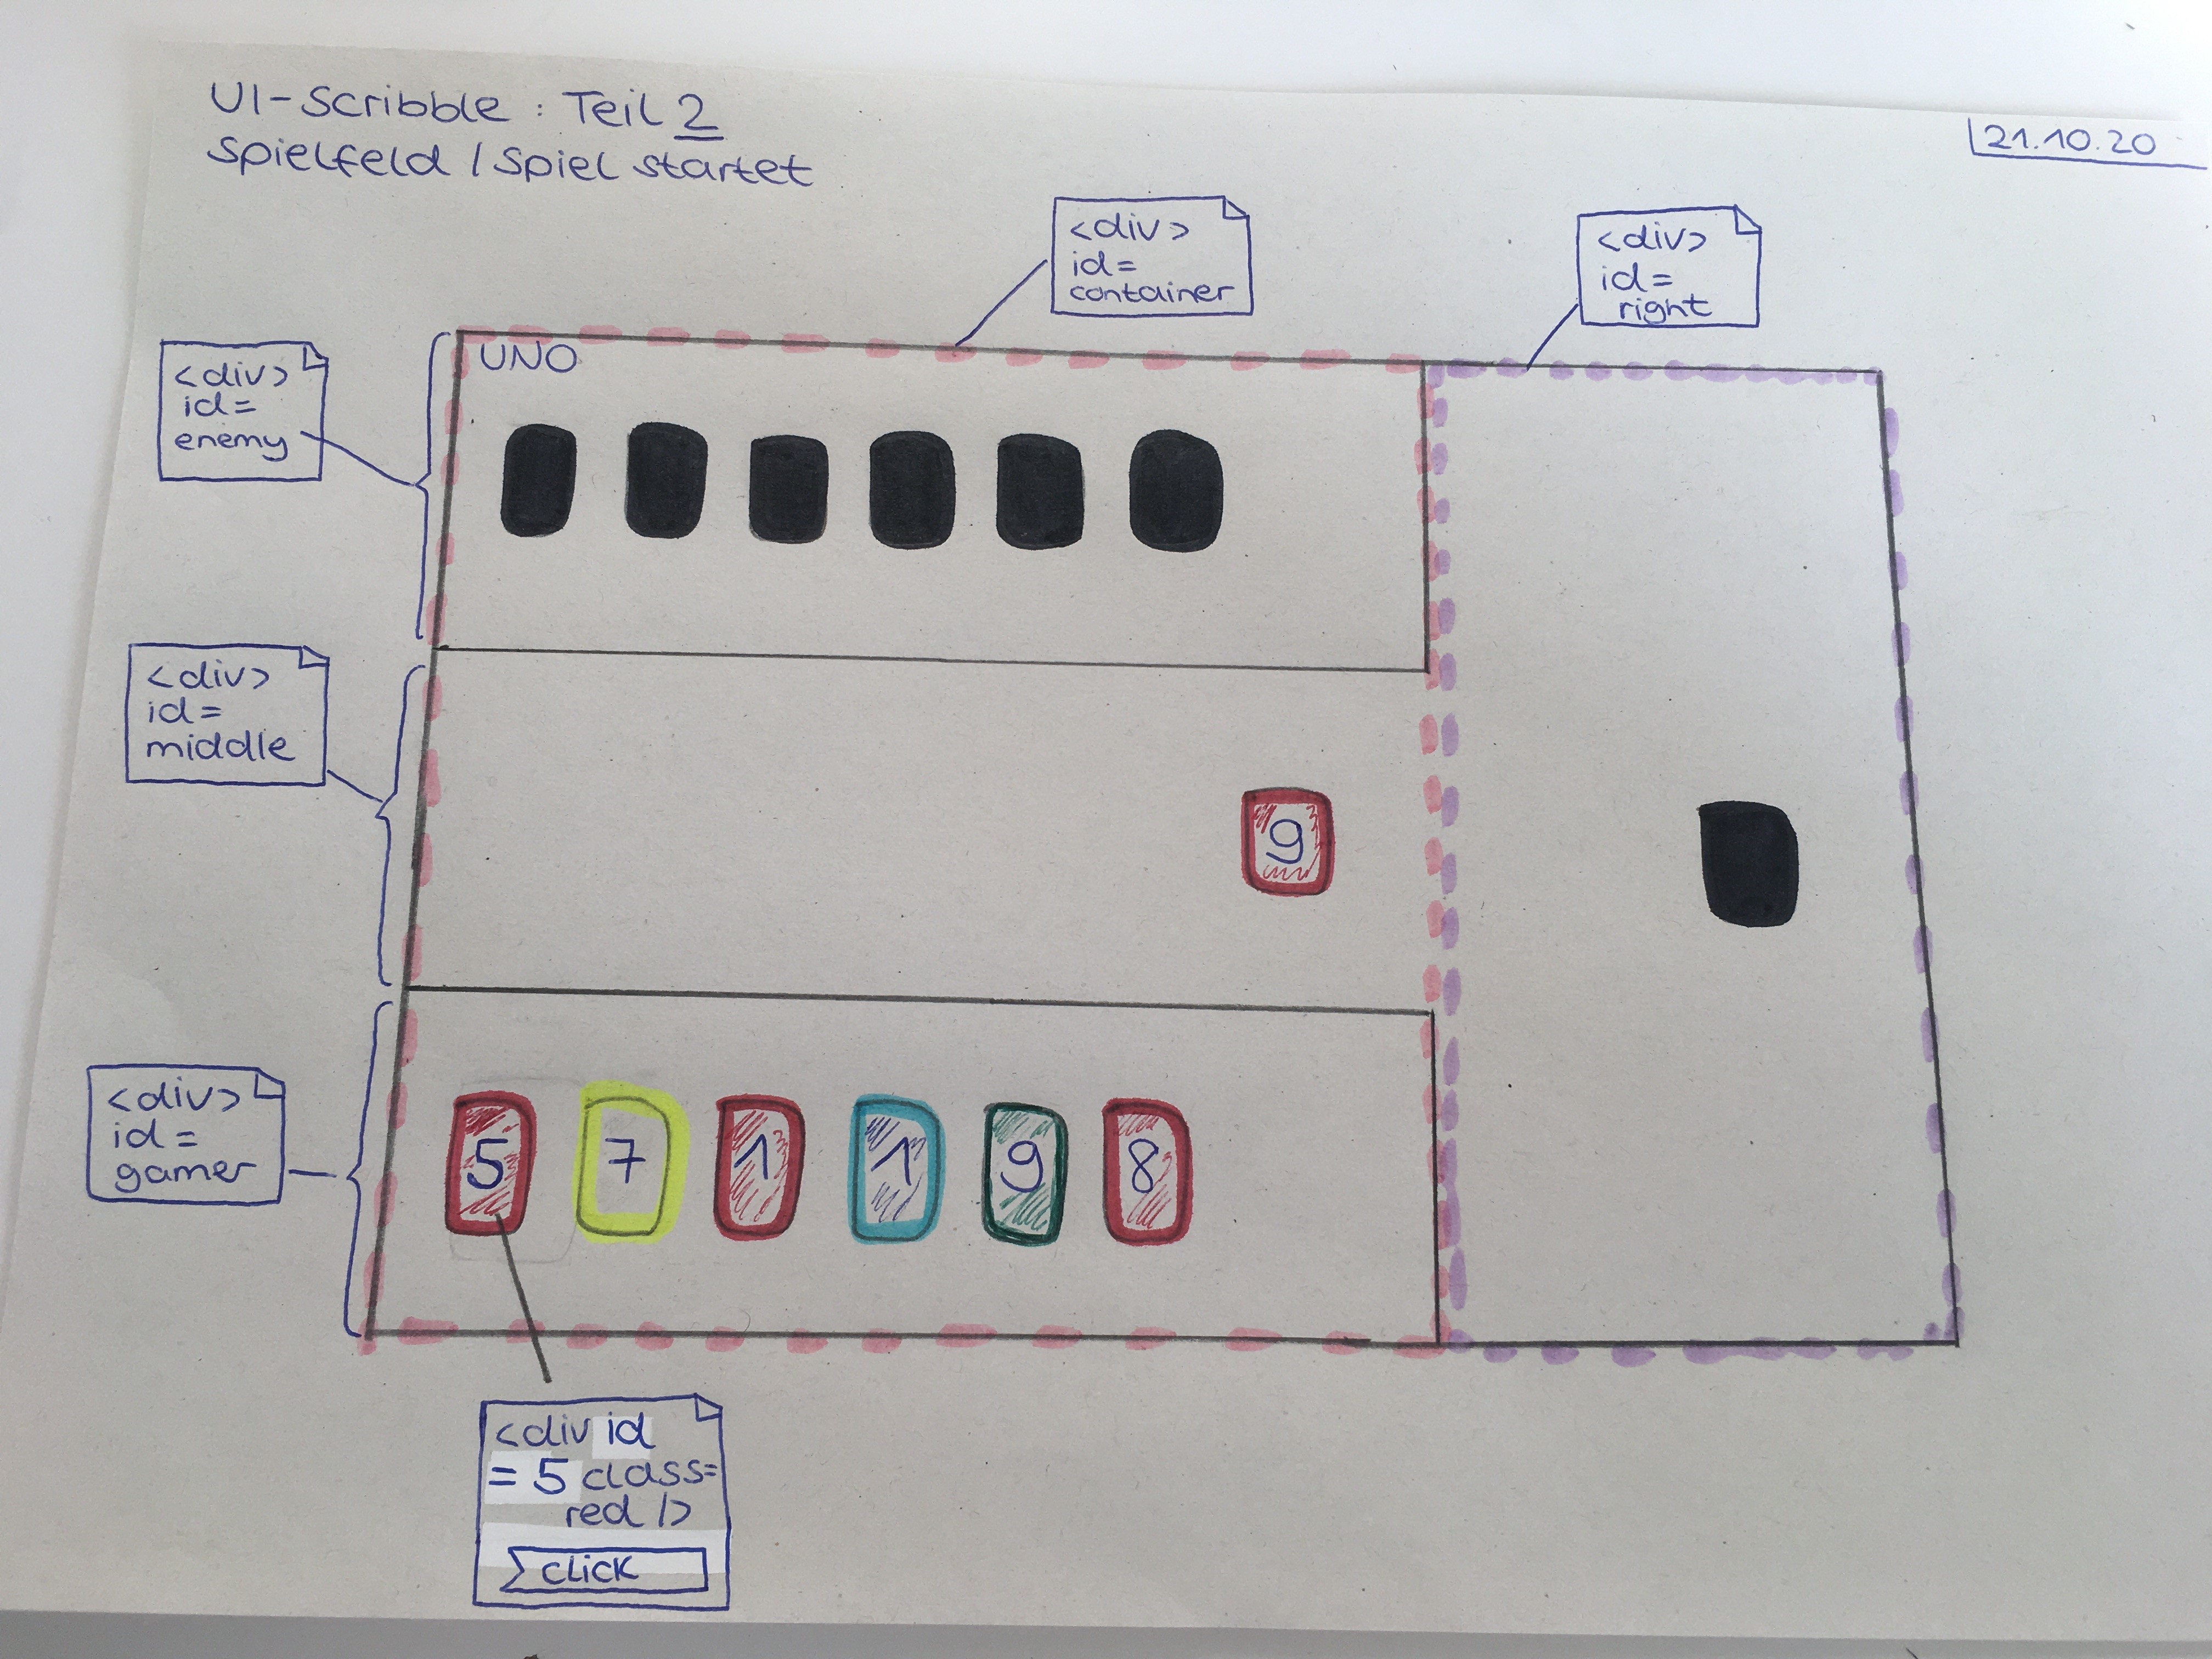 UI-Scribble : Teil 2
Spielfeld / Spiel startet
21.10.20
<div>
id=
container
<div>
id=
right
<div>
id=
enemy
UNO
<div>
id=
middle
9
<div>
id=
gamer
5 7 1 1 9 8
<div id
= 5 class=
red />
click